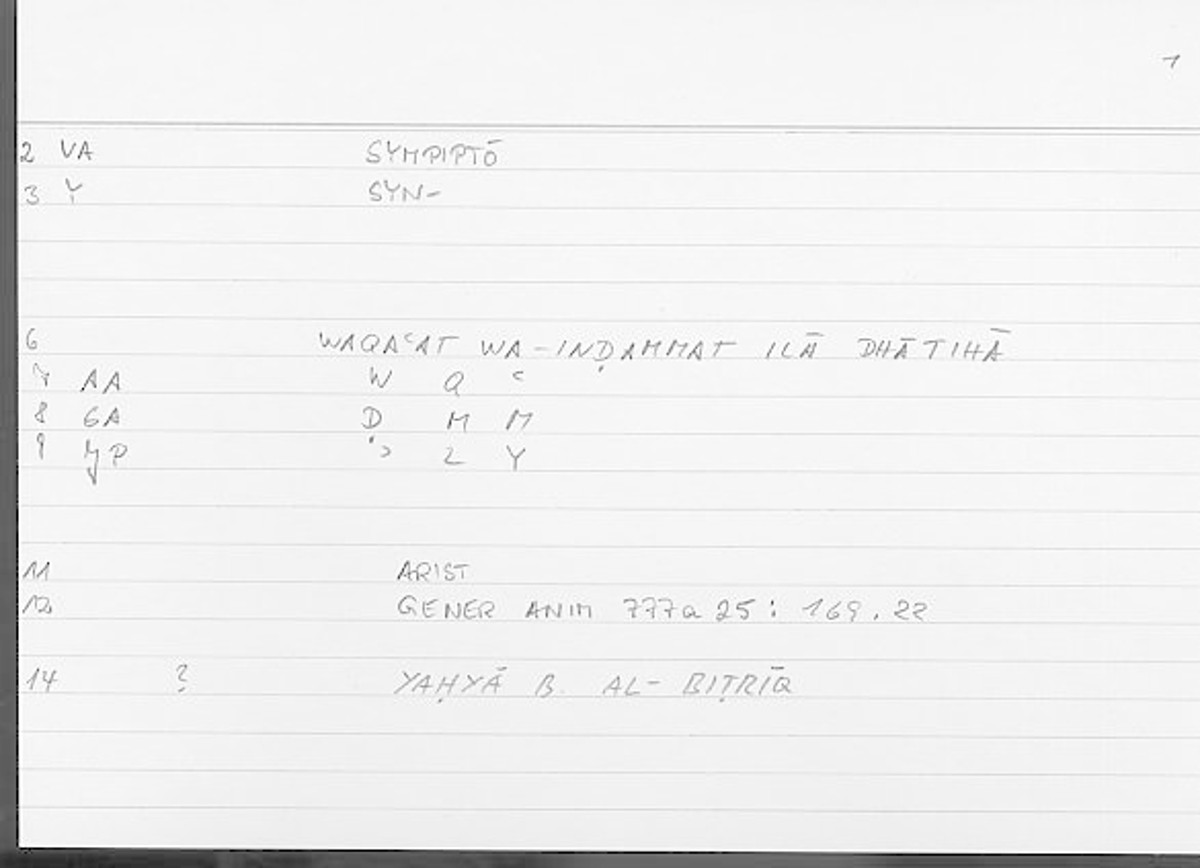 1
2 VA SYMPIPTŌ
3 Y SYN-
6 WAQAʿAT WA-INḌAMMAT ILĀ DHĀTIHĀ
7 AA W Q ʿ
8 GA Ḍ M M
9 JP ʾ L Y
11 ARIST
12 GENER ANIM 777a 25: 169.22
14 ? YAḤYĀ B. AL-BIṬRĪQ